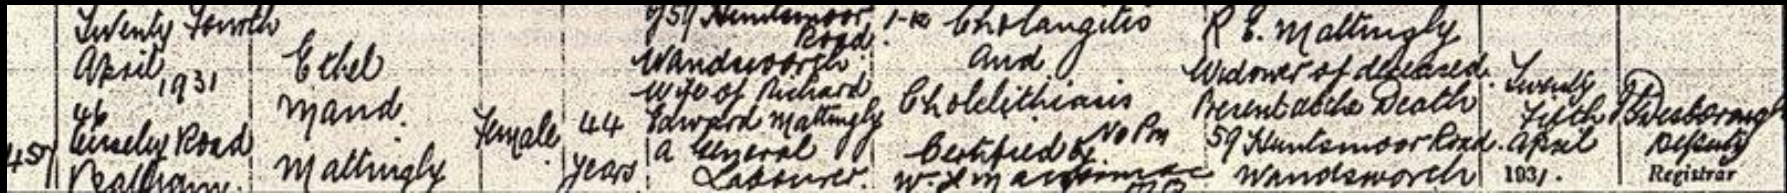 Twenty Fourth
April
1931
46
Road
457
Ethel
Maud
Mattingly
Female
44
years
59 Huntsmoor
Road
Wandsworth
Wife of Richard
Edward Mattingly
a General
Labourer.
Cholangitis
and
Cholelithiasis
No Pm
Certified by
R E. Mattingly
Widower of deceased.
Present at the Death
59 Huntsmoor Road.
Wandsworth
Twenty
Fifth
April
1931.
Desborough
Deputy
Registrar